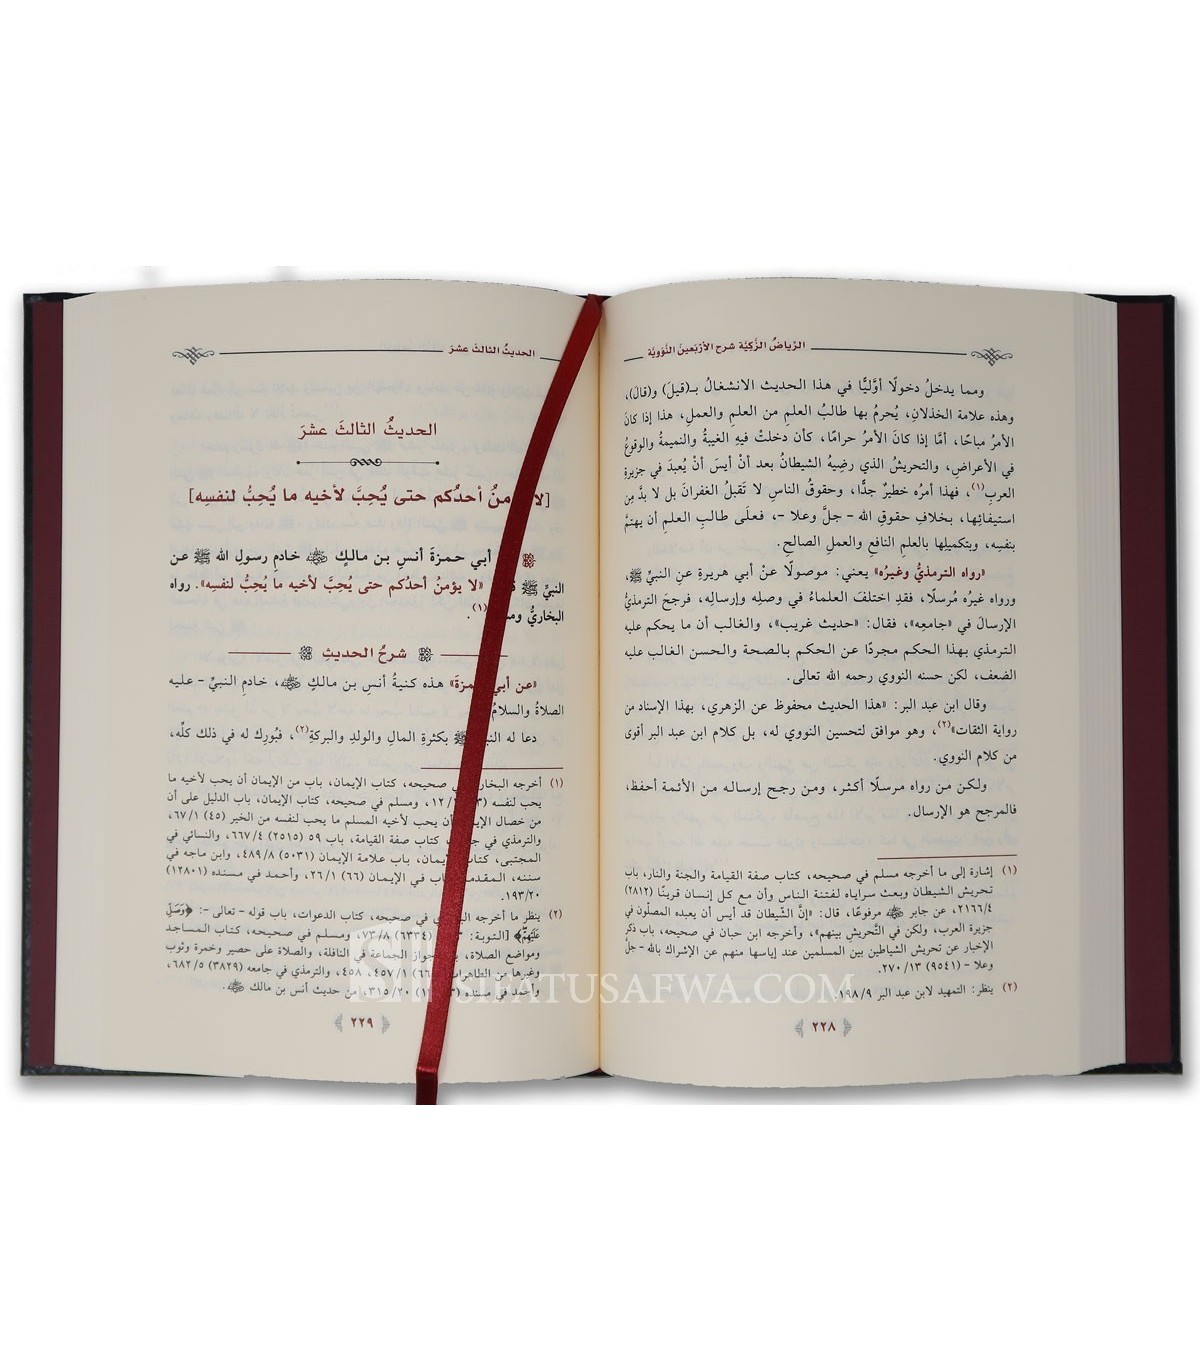 الرِّياضُ الزَّكِيَّة شرح الأرْبَعينَ النَّوَوِيَّة
ومما يدخلُ دخولًا أوَّليًّا في هذا الحديث الانشغالُ بـ(قيلَ) و(قالَ)،
وهذه علامة الخذلانِ، يُحرمُ بها طالبُ العلمِ من العلمِ والعملِ، هذا إذا كانَ
الأمرُ مباحًا، أمَّا إذا كانَ الأمرُ حرامًا، كأن دخلتْ فيهِ الغيبةُ والنميمةُ والوقوعُ
في الأعراضِ، والتحريشُ الذي رضِيهُ الشيطانُ بعد أنْ أيسَ أنْ يُعبدَ في جزيرةِ
العربِ(١)، فهذا أمرُه خطيرٌ جدًّا، وحقوقُ الناسِ لا تَقبلُ الغفرانَ بل لا بدَّ مِن
استيفائِها، بخلافِ حقوقِ الله - جلَّ وعلا -، فعلَى طالبِ العلمِ أن يهتمَّ
بنفسِه، وبتكميلِها بالعلمِ النافعِ والعملِ الصالحِ.
«رواه الترمذيُّ وغيرُه» يعني: موصولًا عنْ أبي هريرةَ عنِ النبيِّ ﷺ،
ورواه غيرُه مُرسلًا، فقدِ اختلفَ العلماءُ في وصلِه وإرسالِه، فرجحَ الترمذيُّ
الإرسالَ في «جامعِه»، فقال: «حديث غريب»، والغالب أن ما يحكم عليه
الترمذي بهذا الحكم مجردًا عن الحكم بالصحة والحسن الغالب عليه
الضعف، لكن حسنه النووي رحمه الله تعالى.
وقال ابن عبد البر: «هذا الحديث محفوظ عن الزهري، بهذا الإسناد من
رواية الثقات»(٢)، وهو موافق لتحسين النووي له، بل كلام ابن عبد البر أقوى
من كلام النووي.
ولكن من رواه مرسلًا أكثر، ومن رجح إرساله من الأئمة أحفظ،
فالمرجح هو الإرسال.
(١) إشارة إلى ما أخرجه مسلم في صحيحه، كتاب صفة القيامة والجنة والنار، باب
تحريش الشيطان وبعث سراياه لفتنة الناس وأن مع كل إنسان قرينًا (٢٨١٢)
٢١٦٦/٤، عن جابر ﷺ مرفوعًا، قال: «إنَّ الشَّيطان قد أيس أن يعبده المصلّون في
جزيرة العرب، ولكن في التَّحريش بينهم»، وأخرجه ابن حبان في صحيحه، باب ذكر
الإخبار عن تحريش الشياطين بين المسلمين عند إياسها منهم عن الإشراك بالله - جلَّ
وعلا - (٩٥٤١) ٢٧٠/١٣.
(٢) ينظر: التمهيد لابن عبد البر ١٩٨/٩.
٢٢٨
الحديثُ الثالثَ عشرَ
الحديثُ الثالثَ عشرَ
[لا ‌منُ أحدُكم حتى يُحِبَّ لأخيه ما يُحِبُّ لنفسِه]
أبي حمزةَ أنسِ بن مالكٍ خادمِ رسولِ الله ﷺ عن
النبيِّ ﷺ «لا يؤمنُ أحدُكم حتى يُحِبَّ لأخيه ما يُحِبُّ لنفسِه». رواه
البخاريُّ (١).
شرحُ الحديثِ
«عن أبي حمزةَ» هذه كنيةُ أنسِ بن مالكٍ، خادمِ النبيِّ - عليه
الصلاةُ والسلامُ
دعا له بكثرةِ المالِ والولدِ والبركةِ(٢)، فبُورِك له في ذلك كلِّه،
(١) أخرجه البخاري في صحيحه، كتاب الإيمان، باب من الإيمان أن يحب لأخيه ما
يحب لنفسه ١٢/١، ومسلم في صحيحه، كتاب الإيمان، باب الدليل على أن
من خصال الإيمان أن يحب لأخيه المسلم ما يحب لنفسه من الخير (٤٥) ٦٧/١،
والترمذي في كتاب صفة القيامة، باب ٥٩ (٢٥١٥) ٦٦٧/٤، والنسائي في
المجتبى، كتاب الإيمان، باب علامة الإيمان (٥٠٣١) ٤٨٩/٨، وابن ماجه في
سننه، المقدمة، باب في الإيمان (٦٦) ٢٦/١، وأحمد في مسنده (١٢٨٠١)
١٩٣/٢٠.
(٢) ينظر ما أخرجه البخاري في صحيحه، كتاب الدعوات، باب قوله - تعالى -: ﴿وَصَلِّ
عَلَيْهِمْ﴾ [التوبة: (٦٣٣٤) ٧٣/٨، ومسلم في صحيحه، كتاب المساجد
ومواضع الصلاة، باب جواز الجماعة في النافلة، والصلاة على حصير وخمرة وثوب
وغيرها من الطاهرات ٤٥٧/١، ٤٥٨، والترمذي في جامعه (٣٨٢٩) ٦٨٢/٥،
وأحمد في مسنده ٣١٥/٢٠، من حديث أنس بن مالك.
٢٢٩
SIFATUSAFWA.COM